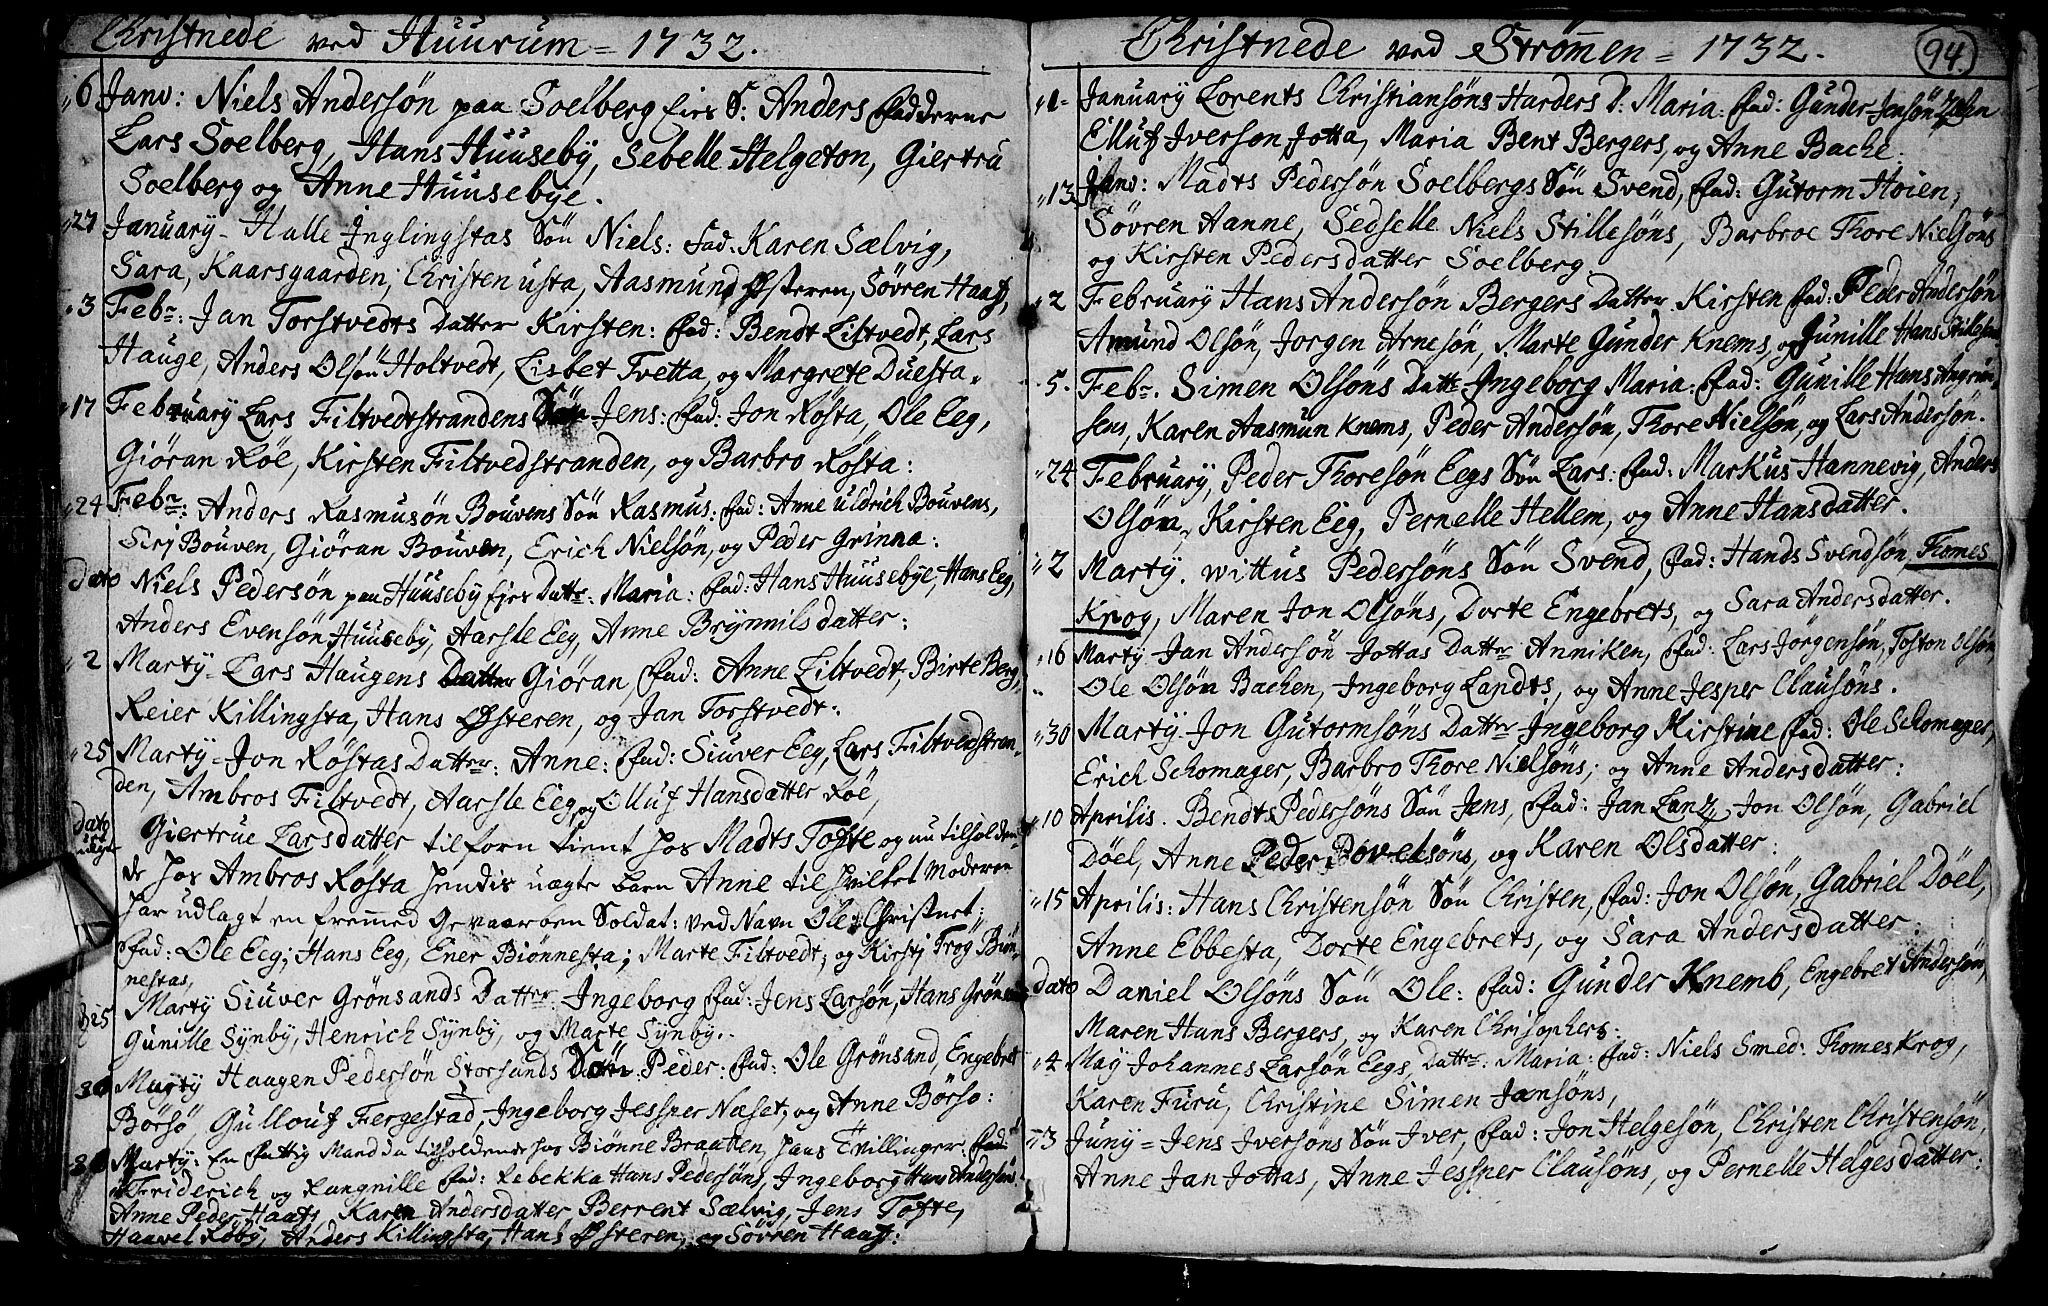 Christnede ved Huurum = 1732.
6 Janv: Niels Andersøn paa Soelberg Eies S: Anders Fadderne
Lars Soelberg, Hans Huuseby, Sebelle Helgeton, Giertru
Soelberg og Anne Huusebye.
27 January - Halle Inglingstas Søn Niels: Fad. Karen Sælvig,
Sara, Kaarsgaarden, Christen usta, Aasmund Østeren, Søvren Haaf,
3 Febr: Jan Torstvedts Datter Kirsten: Fad: Bendt Liltvedt, Lars
Hauge, Anders Olsøn Holtvedt, Lisbet Tvetta, og Margrete Duesta.
17 February Lars Filtvedtstrandens Søn Jens: Fad: Jon Røsta, Ole Eeg,
Giøran Røe, Kirsten Filtvedstranden, og Barbro Røsta:
24 Febr: Anders Rasmusøn Bouvens Søn Rasmus: Fad: Anne Uldrich Bouvens,
Sirj Bouven, Giøran Bouven, Erich Nielsøn, og Peder Grinna:
Dato Niels Pedersøn paa Huuseby Ejes Dattr: Maria: Fad: Hans Huusebye, Hans Eeg,
Anders Evensøn Huuseby, Aarsle Eeg, Anne Brynnilsdatter:
2 Marty - Lars Haugens Datter Giøran, Fad: Anne Liltvedt, Birte Berg,
Reier Killingsta, Hans Østeren, og Jan Torstvedt:
25 Marty - Jon Røstas Datter: Anne: Fad: Siuver Eeg, Lars Filtvedstran-
den, Ambros Filtvedt, Aarsle Eeg, og Olluf Hansdatter Røe,
Dato Giertrue Larsdatter tilforn tient hos Madts Tofte og nu tilholden-
de hos Ambros Røsta hendis uægte barn Anne til hvilket Moderen
har udlagt en fremmed Gevaarben Soldat: ved Navn Ole Christnet;
Fad: Ole Eeg; Hans Eeg, Ener Biønnesta; Marte Filtvedt; og Kirstj Trog Biøn-
nestas,
25 Marty Siuver Grønsands Datter Ingeborg Fad: Jens Larsøn, Hans Grønsand
Gunille Synby, Henrich Synby, og Marte Synby.
30 Marty Haagen Pedersøn Storsands Søn Peder: Fad: Ole Grønsand, Engebret
Børsø, Gullouf Fergestad, Ingeborg Jessper Næset, og Anne Børsø:
Marty: En Fattig Mand da tilholdende hos Biønne Braaten, hans Tvillinger
Friderich og Rangnille Fad: Rebekka Hans Pedersøns, Ingeborg Hans Andersøns
Anne Peder Haafs Karen Andersdatter Berrent Sælvig, Jens Tofte,
Haavel Røby, Anders Killingsta, Hans Østeren, og Søvren Haaf:
Christnede ved Strømen = 1732.
94.
1 January Lorents Christiansøns Harders D: Maria: Fad: Gunder Jensøn
Elluf Iversøn Jotta, Maria Bent Bergers, og Anne Bache:
13 Janv: Madts Pedersøn Soelbergs Søn Svend, Fad: Gutorm Høien,
Søvren Hanne, Sedselle Niels Stillesøns, Barbroe Thore Nielsøns
og Kirsten Pedersdatter Soelberg.
2 February Hans Andersøn Bergers Datter Kirsten Fad: Peder Andersøn
Amund Olsøn, Jorgen Arnesøn, Marte Gunder Knems og Gunille Hans Stillesøns
5. Febr. Simen Olsøns Dattr Ingeborg Maria: Fad: Gunille Hans
sens, Karen Aasmun Knems, Peder Andersøn, Thore Nielsøn, og Lars Andersøn.
24 February, Peder Thoresøn Eegs Søn Lars: Fad: Markus Hannevig, Anders
Olsøn, Kirsten Eeg, Pernelle Hellem, og Anne Hansdatter.
2 Marty. Wittus Pedersøns Søn Svend, Fad: Hands Svendsøn, Thomes
Krog, Maren Jon Olsøns, Dorte Engebrets, og Sara Andersdatter.
16 Marty Jan Andersøn Jottas Datter Anniken, Fad: Lars Jørgensøn, Toston Olsøn
Ole Olsøn Bachen, Ingeborg Landts, og Anne Jesper Clausøns.
30 Marty Jon Gutormsøns Datter Ingeborg Kirstine Fad: Ole Schomager,
Erich Schomager, Barbro Thore Nielsøns; og Anne Andersdatter:
10 Aprilis. Bendt Pedersøns Søn Jens, Fad: Jan Lantz, Jon Olsøn, Gabriel
Døel, Anne Peder Povelsøns, og Karen Olsdatter:
15 Aprilis: Hans Christensøn Søn Christen, Fad: Jon Olsøn, Gabriel Døel,
Anne Ebbesta, Dorte Engebrets, og Sara Andersdatter:
Dato Daniel Olsøns Søn Ole: Fad: Gunder Knemb, Engebret Andersøn,
Maren Hans Bergers, og Karen Chrisophers:
4 May Johannes Larsøn Eegs, Dattr: Maria: Fad: Niels Smed: Thomes Krog,
Karen Furu, Christine Simen Jansøns,
3 Juny = Jens Iversøns Søn Iver, Fad: Jon Helgesøn, Christen Christensøn,
Anne Jan Jottas, Anne Jessper Clausøns, og Pernelle Helgesdatter: